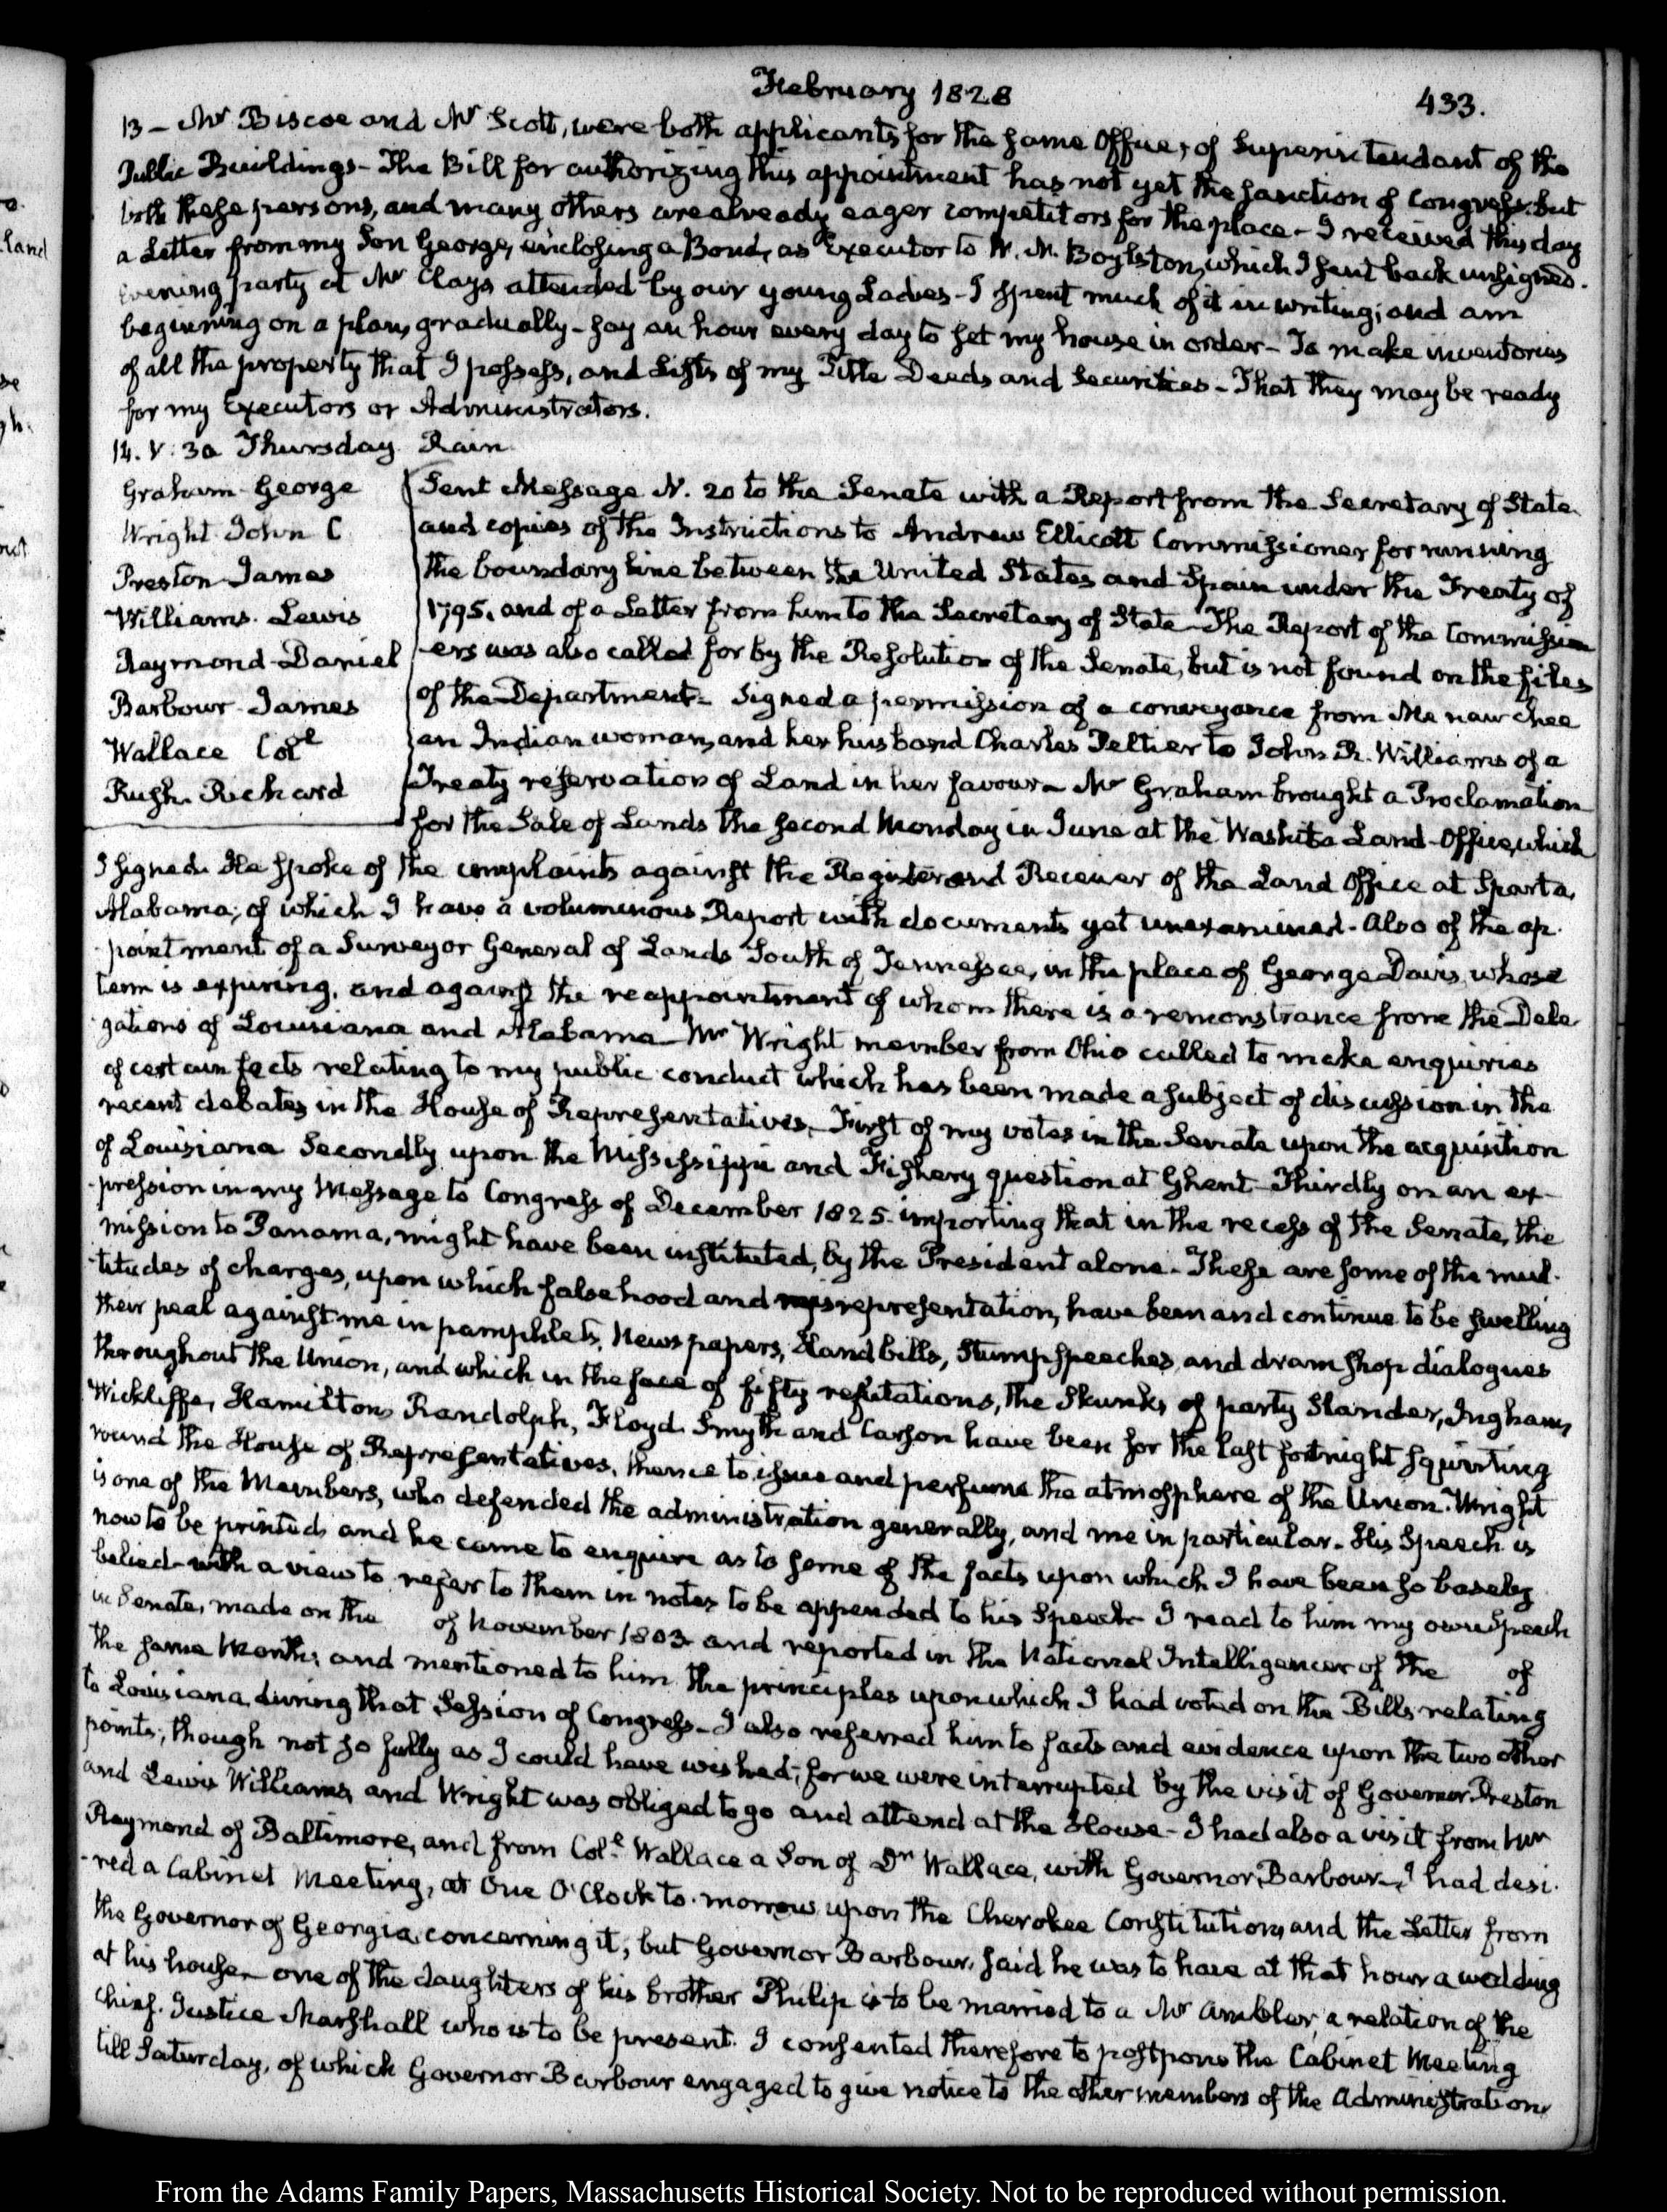 February 1828
433.
13 – Mr Biscoe and Mr Scott, were both applicants for the same Office, of Superintendant of the
Public Buildings – The Bill for authorizing this appointment has not yet the sanction of Congress; but
both these persons, and many others are already eager competitors for the place – I received this day
a Letter from my Son George, enclosing a Bond, as Executor to W. N. Boylston, which I sent back unsigned.
Evening party at Mr Clays attended by our young Ladies – I spent much of it in writing; and am
beginning on a plan, gradually – say an hour every day to set my house in order – To make inventories
of all the property that I possess, and Lists of my Title Deeds and Securities – That they may be ready
for my Executors or Administrators.
14. V: 30 Thursday Rain
Graham George
Wright John C
Preston James
Williams. Lewis
Raymond Daniel
Barbour James
Wallace Cole
Rush. Richard
Sent Message N. 20 to the Senate with a Report from the Secretary of State
and copies of the Instructions to Andrew Ellicott Commissioner for running
the boundary line between the United States and Spain under the Treaty of
1795. and of a Letter from him to the Secretary of State – The Report of the Commission
-ers was also called for by the Resolution of the Senate, but is not found on the files
of the Department – Signed a permission of a conveyance from Me naw chee
an Indian woman, and her husband Charles Peltier to John R. Williams of a
Treaty reservation of Land in her favour – Mr Graham brought a Proclamation
for the Sale of Lands the second Monday in June at the Washita Land-Office, which
I signed. He spoke of the complaints against the Register and Receiver of the Land Office at Sparta,
Alabama; of which I have a voluminous Report with documents yet unexamined – also of the ap-
pointment of a Surveyor General of Lands South of Tennessee, in the place of George Davis, whose
term is expiring, and against the reappointment of whom there is a remonstrance from the Dele-
gations of Louisiana and Alabama – Mr Wright member from Ohio called to make enquiries
of certain facts relating to my public conduct which has been made a subject of discussion in the
recent debates in the House of Representatives – First of my votes in the Senate upon the acquisition
of Louisiana Secondly upon the Mississippi and Fishery question at Ghent – Thirdly on an ex-
pression in my Message to Congress of December 1825. importing that in the recess of the Senate, the
mission to Panama, might have been instituted, by the President alone – These are some of the mul-
titudes of charges, upon which falsehood and misrepresentation, have been and continue to be swelling
their peal against me in pamphlets, Newspapers, Hand bills, Stump speeches, and dram shop dialogues
throughout the Union, and which in the face of fifty refutations, the Skunks of party Slander, Ingham,
Wickliffe, Hamilton, Randolph, Floyd, Smyth and Carson have been for the last fortnight squirting
round the House of Representatives, thence to issue and perfume the atmosphere of the Union – Wright
is one of the Members, who defended the administration generally, and me in particular – His Speech is
now to be printed, and he came to enquire as to some of the facts upon which I have been so basely
belied – with a view to refer to them in notes to be appended to his Speech – I read to him my own Speech
in Senate, made on the of November 1803 and reported in the National Intelligencer of the of
the same Month; and mentioned to him the principles upon which I had voted on the Bills relating
to Louisiana, during that Session of Congress – I also referred him to facts and evidence upon the two other
points; though not so fully as I could have wished; for we were interrupted by the visit of Governor Preston
and Lewis Williams, and Wright was obliged to go and attend at the House – I had also a visit from Mr
Raymond of Baltimore, and from Cole Wallace a Son of Dr Wallace, with Governor Barbour – I had desi-
red a Cabinet Meeting, at One O'Clock to-morrow upon the Cherokee Constitution, and the Letter from
the Governor of Georgia concerning it; but Governor Barbour, said he was to have at that hour a wedding
at his house – one of the daughters of his brother Philip is to be married to a Mr Ambler, a relation of the
Chief-Justice Marshall who is to be present. I consented therefore to postpone the Cabinet Meeting
till Saturday, of which Governor Barbour engaged to give notice to the other members of the Administration
From the Adams Family Papers, Massachusetts Historical Society. Not to be reproduced without permission.